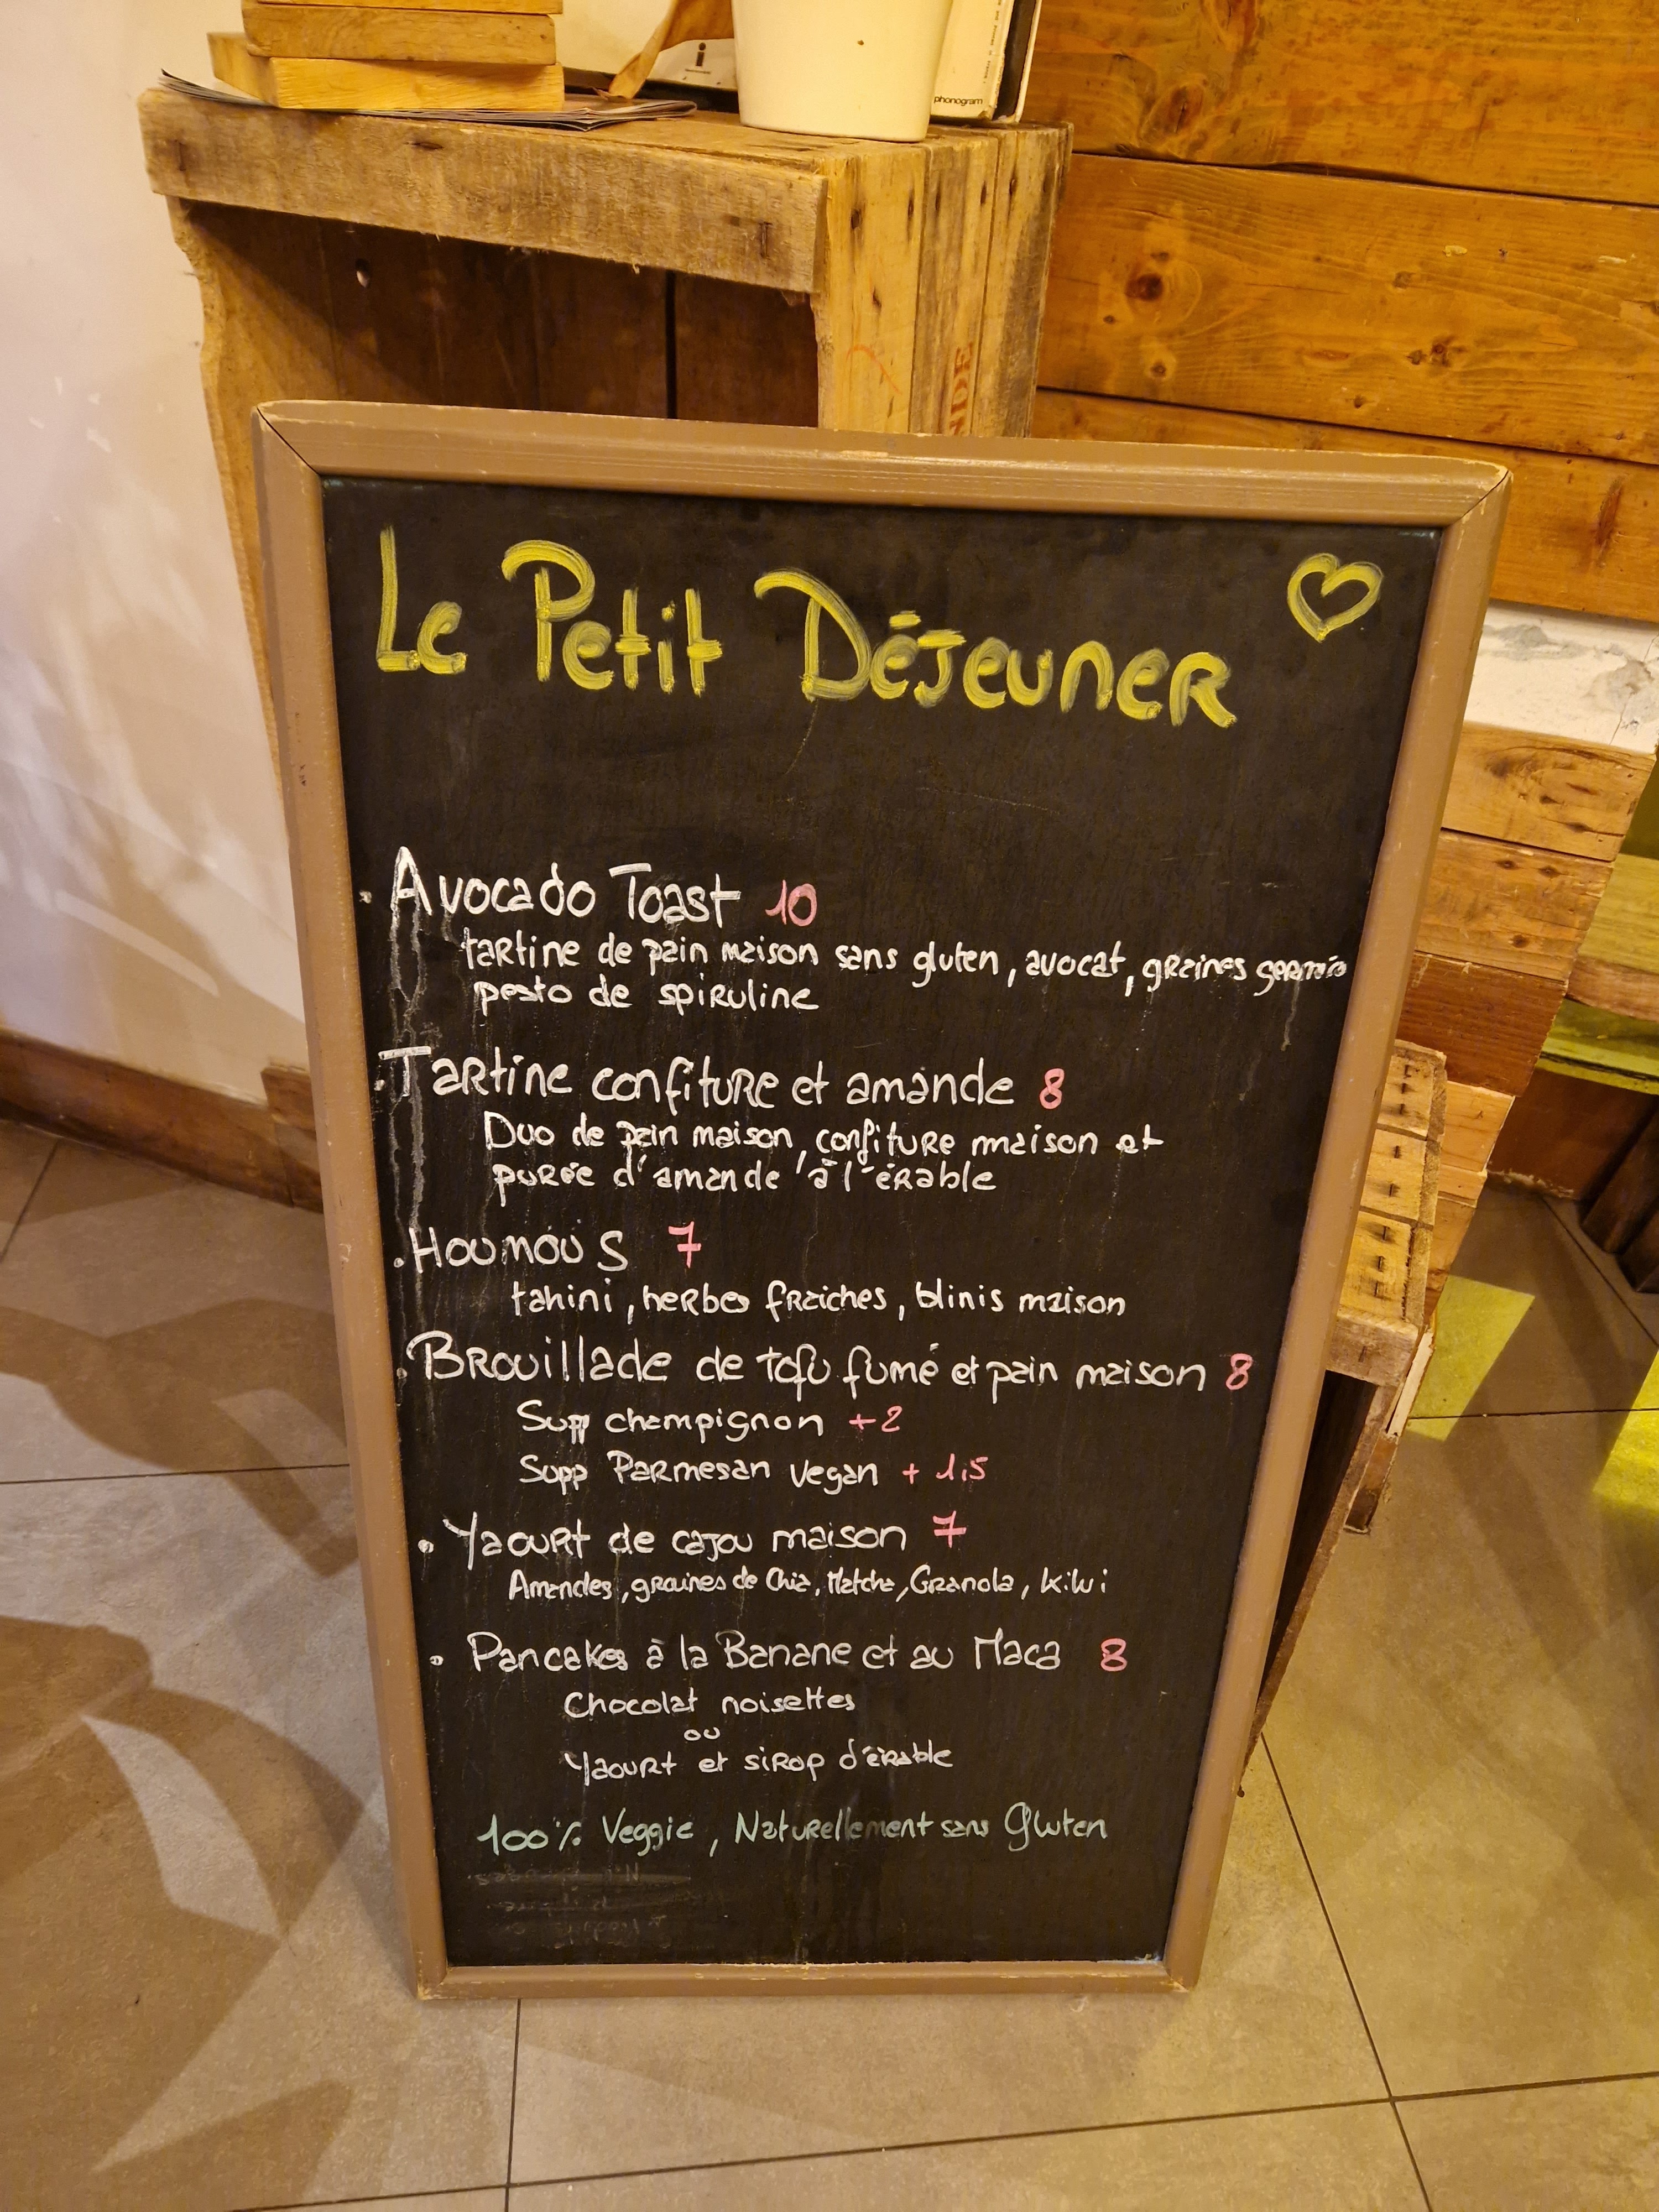 phonogram
NDE
Le Petit Déjeuner
• Avocado Toast 10
tartine de pain maison sans gluten, avocat, graines
pesto de spiruline
• Tartine confiture et amande 8
Duo de pain maison, confiture maison et
purée d'amande à l'érable
• Houmous 7
tahini, herbes fraiches, blinis maison
• Brouillade de tofu fumé et pain maison 8
Supp champignon +2
Supp Parmesan vegan + 1,5
• Yaourt de cajou maison 7
Amandes, graines de Chia, Matcha, Granola, kiwi
• Pancakes à la Banane et au Maca 8
Chocolat noisettes
ou
Yaourt et sirop d'érable
100% Veggie, Naturellement sans Gluten